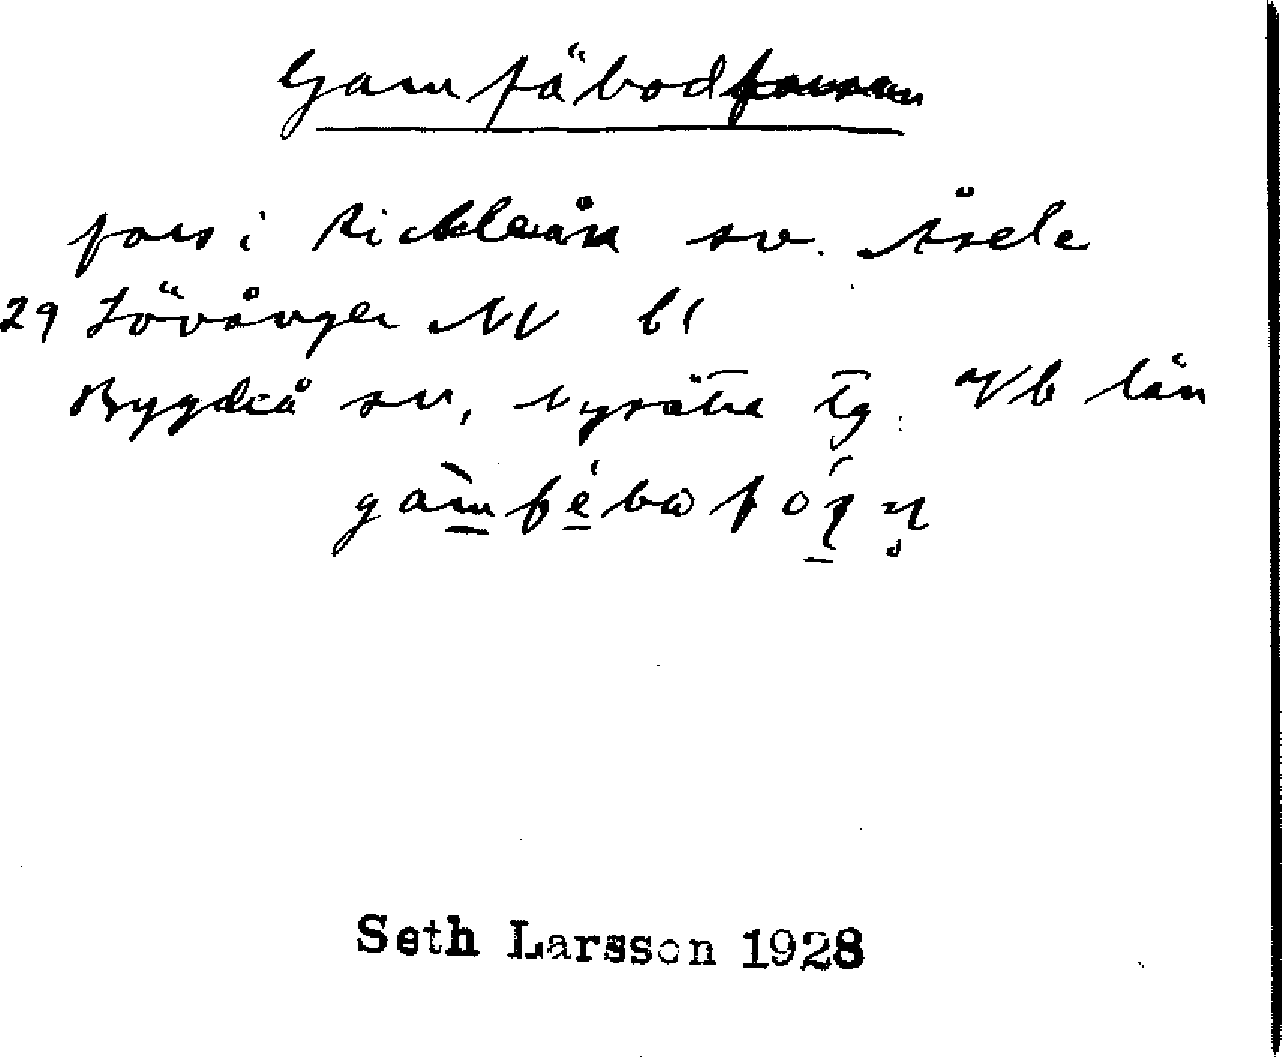 Gamfäbodforsen
fors i Rickleån sv. Åsele
29 Lövånger NV bl
Bygdeå sn, Nysätra tg. Vb län
Seth Larsson 1928